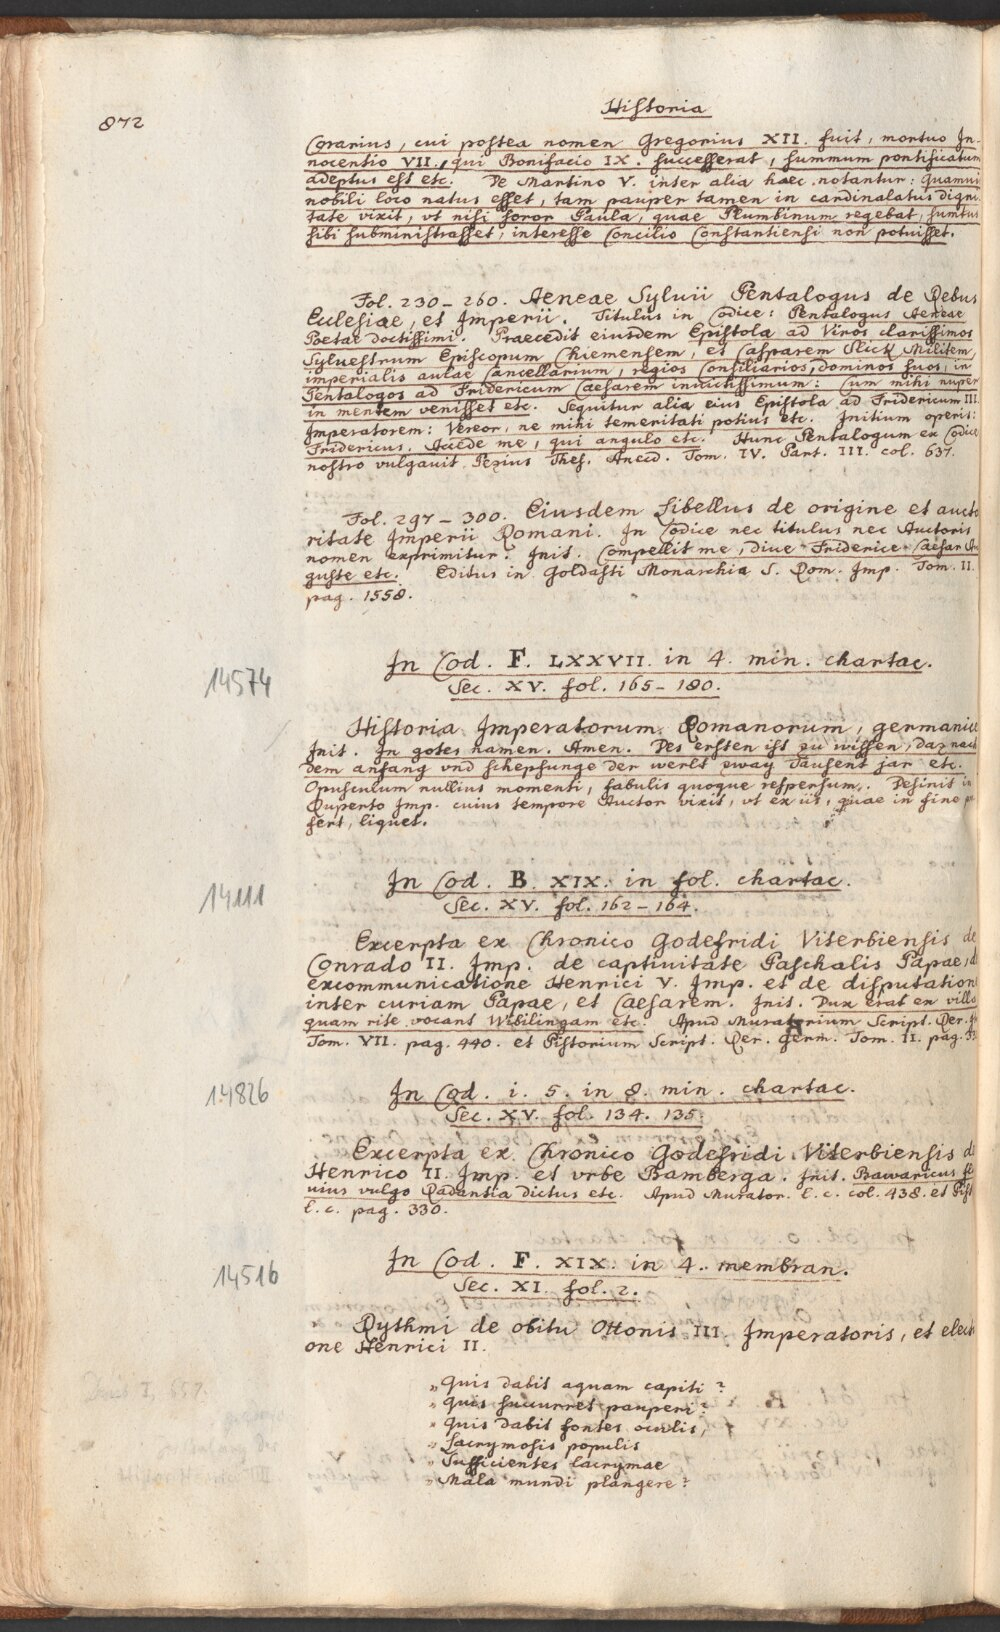 872
Historia
Corarius, cui postea nomen Gregorius XII. fuit, mortuo In-
nocentio VII., qui Bonifacio IX. successerat, summum pontificatum
adeptus est etc. De Martino V. inter alia haec notantur: Quamuis
nobili loco natus esset, tam pauper tamen in cardinalatus digni-
tate vixit, vt nisi soror Paula, quae Plumbinum regebat, sumtus
sibi subministrasset, interesse Concilio Constantiensi non potuisset.
Fol. 230-260. Aeneae Syluii Pentalogus de Rebus
Eclesiae, et Imperii. Titulus in Codice: Pentalogus Aeneae
Poetae doctissimi. Praecedit eiusdem Epistola ad Viros clarissimos
Syluestrum Episcopum Chiemensem, et Casparem Slick Militem,
imperialis aulae Cancellarium, regios Consiliarios, dominos suos, in
Pentalogos ad Fridericum Caesarem inuictissimum: Cum mihi nuper
in mentem venisset etc. Sequitur alia eius Epistola ad Fridericum III.
Imperatorem: Vereor, ne mihi temeritati potius etc. Initium operis:
Fridericus. Accede me, qui angulo etc. Hunc Pentalogum ex Codice
nostro vulgauit Pezius Thes. Anecd. Tom. IV. Part. III. col. 637.
Fol. 297-300. Eiusdem Libellus de origine et aucto
ritate Imperii Romani. In Codice nec titulus nec Auctoris
nomen exprimitur. Init. Compellit me, diue Friderice Caesar Au
guste etc. Editus in Goldasti Monarchia S. Rom. Imp. Tom. II.
pag. 1558.
In Cod. F. LXXVII. in 4. min. chartac.
14574
Sec. XV. fol. 165-180.
Historia Imperatorum Romanorum, germanice
Init. In gotes namen. Amen. Des ersten ist zu wissen, daz nach
dem anfang vnd schepfunge der werlt zway Tausent jar etc.
Opusculum nullius momenti, fabulis quoque respersum. Desinit in
Ruperto Imp. cuius tempore Auctor vixit, vt ex iis, quae in fine
fert, liquet.
In Cod. B. XIX. in fol. chartac.
14111
Sec. XV. fol. 162-164.
Excerpta ex Chronico Godefridi Viterbiensis de
Conrado II. Imp. de captiuitate Paschalis Papae, d
excommunicatione Henrici V. Imp. et de disputatione
inter curiam Papae, et Caesarem. Init. Dux erat ex villa
quam rite vocant Wibilingam etc. Apud Muratorium Script. Rer.
Tom. VII. pag. 440. et Pistorium Script. Rer. Germ. Tom. II. pag.
In Cod. i. 5. in 8. min. chartac.
14826
Sec. XV. fol. 134. 135.
Excerpta ex Chronico Godefridi Viterbiensis d
Henrico II. Imp. et vrbe Bamberga. Init. Bawaricus fl
uius vulgo Radantia dictus etc. Apud Murator. l. c. col. 438. et Pist
l. c. pag. 330.
In Cod. F. XIX. in 4. membran.
14516
Sec. XI. fol. 2.
Rythmi de obitu Ottonis III. Imperatoris, et electi
one Henrici II.
„Quis dabit aquam capiti?
„Quis succurret pauperi?
„Quis dabit fontes oculis,
„Lacrymosis populis
„Sufficientes lacrymae
„Mala mundi plangere?